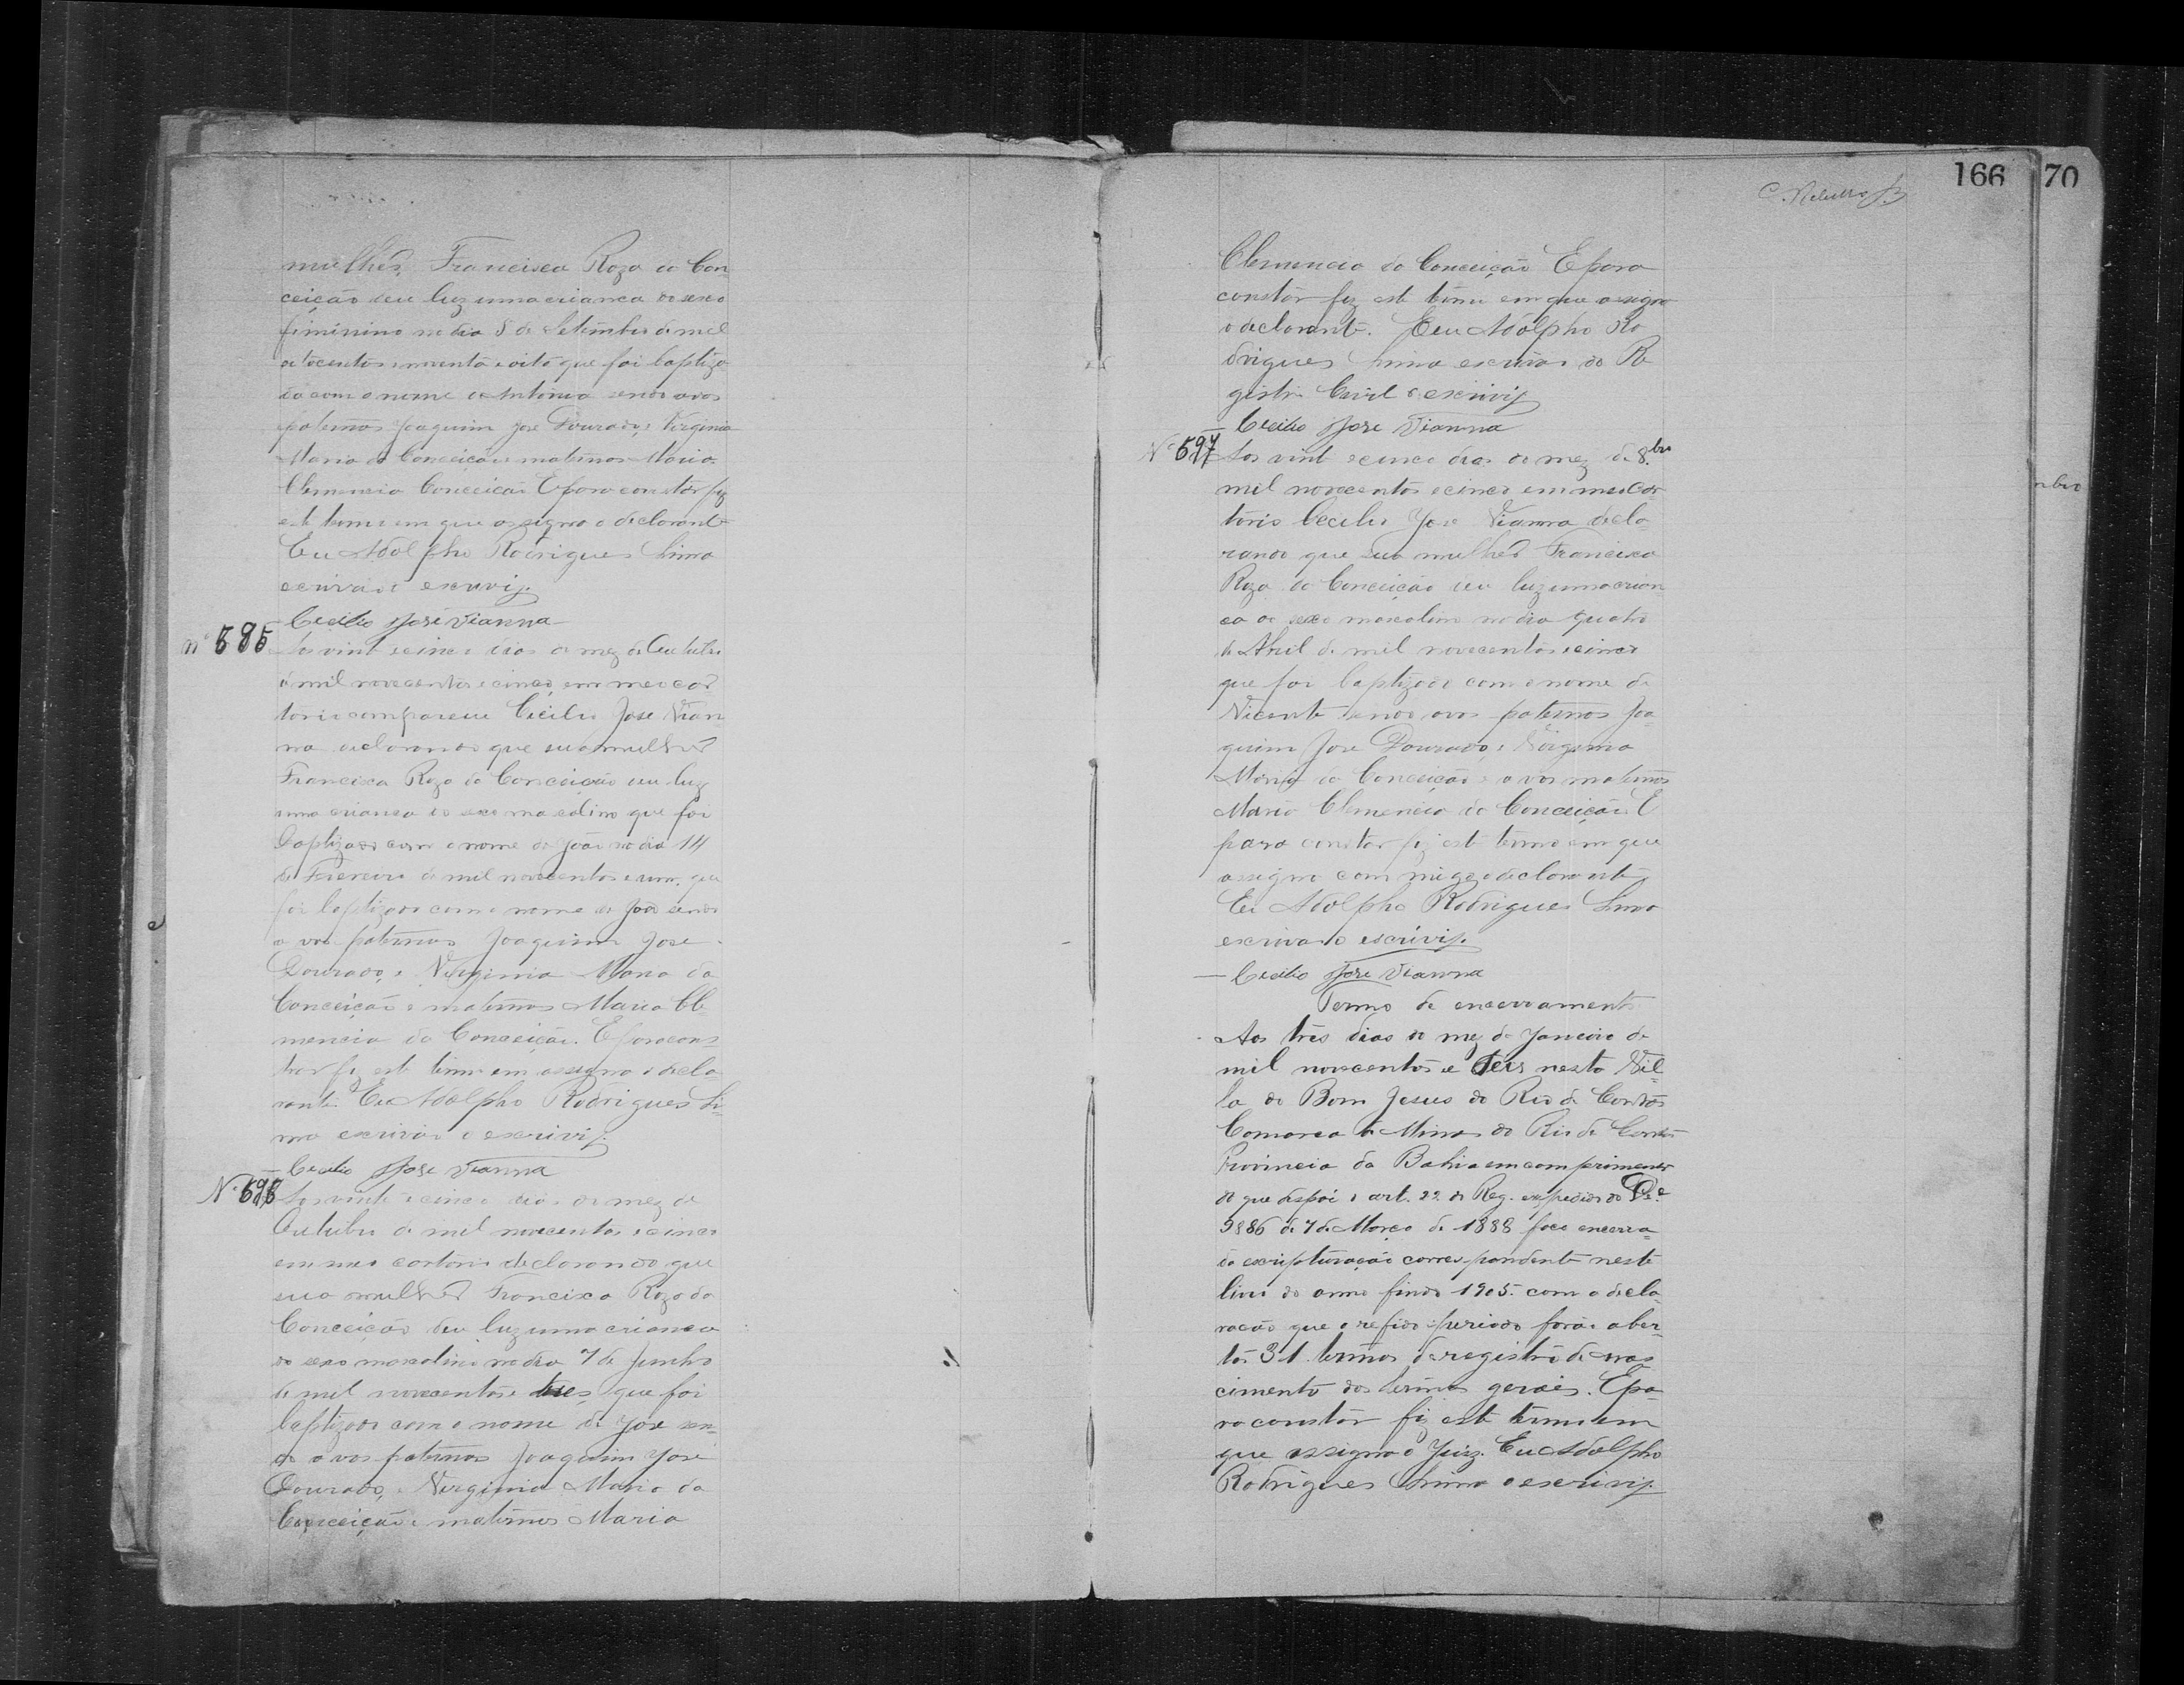 mulher Francisca Roza da Con
ceição deu luz uma crianca do sexo
fiminino no dia 8 de Setembro de mil
oitocentos e noventa e oito que foi baptiza
da com o nome de Antonia sendo avos
paternos Joaquim José Dourado, e Virginia
Maria da Conceição e maternos Maria
Clemencia Conceicão E para constar fiz
este termo em que assigno o declarante
Eu Adolpho Rodrigues Lima
escrivão o escrivi.
Cecilio José Vianna
Nº 695 Aos vinte e cinco dias do mez de Outubro
de mil novecentos e cinco, em meo car
torio compareceu Cecilio José Vian
na declarando que sua mulher
Francisca Roza da Conceição deu luz
uma crianca do sexo mascolino que foi
baptizado com o nome de João no dia 14
de Fevereiro de mil novecentos e um, que
foi baptizado com o nome de João sendo
avos paternos Joaquim José
Dourado, e Virginia Maria da
Conceição e maternos Maria Cle
mencia da Conceição. E para cons
tar fiz este termo em assigno o decla
rante. Eu Adolpho Rodrigues Li-
ma escrivão o escrivi.
Cecilio José Vianna
Nº 696 Aos vinte e cinco dias do mez de
Outubro de mil novecentos e cinco
em meo cartorio declarando que
sua mulher Francisca Roza da
Conceição deu luz uma crianca
do sexo mascolino no dia 7 de Junho
de mil novecentos e tres, que foi
baptizado com o nome de José sen-
do avos paternos Joaquim José
Dourado, e Virginia Maria da
Conceição e maternos Maria
166 70
Clemencia da Conceição E para
constar fiz este termo em que assigno
o declarante. Eu Adolpho Ro
drigues Lima escrivão do Re
gistro Civil o escrivi
Cecilio José Vianna
Nº 697 Aos vinte e cinco dias do mez de 8.bro
mil novecentos e cinco em meo Car-
torio Cecilio José Vianna decla-
rando que sua mulher Francisca
Roza da Conceição deu luz uma crian
ca do sexo mascolino no dia quatro
de Abril de mil novecentos e cinco
que foi baptizado com o nome de
Vicente sendo avos paternos Joa-
quim José Dourado, e Virginia
Maria da Conceição e avos maternos
Maria Clemencia da Conceição E
para constar fiz este termo em que
assigno com migo o declarante,
Eu Adolpho Rodrigues Lima
escrivão o escrivi.
Cecilio José Vianna
Termo de encerramento
Aos três dias do mez de Janeiro de
mil novecentos e seis nesta Vil-
la do Bom Jesus do Rio de Contas
Comarca de Minas do Rio de Contas
Provincia da Bahia em comprimento
do que dispõi o art. 22. do Reg. expedido do De.
9886 de 7 de Março de 1888 faço encerra-
da escripturação correspondente neste
livro do anno findo 1905. com a decla-
racão que o refido periodo forão aber-
tos 31 termos de registro de nas
cimento dos termos geraes. E pa-
ra constar fiz este termo em
que assigna o Juiz. Eu Adolpho
Rodrigues Lima o escrivi.